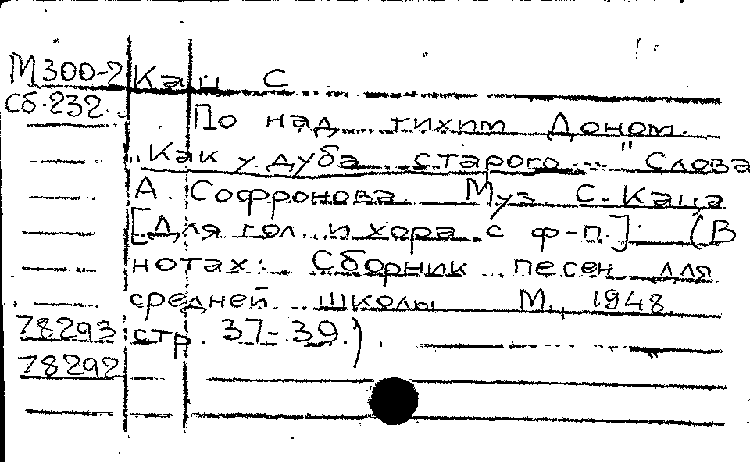 М300-2 Кац С
Сб.232. По над тихим Доном.
„Как у дуба старого..." Слова
А Софронова Муз С.Каца
[Для гол. и хора с ф-п.] (В
нотах: Сборник песен для
средней школы М., 1948
78293 стр. 37-39.)
78292